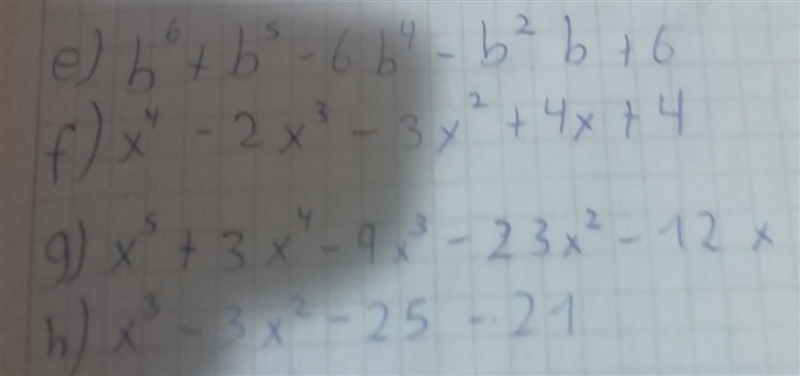 e) b⁶ + b⁵ - 6b⁴ - b² b + 6
f) x⁴ - 2x³ - 3x² + 4x + 4
g) x⁵ + 3x⁴ - 9x³ - 23x² - 12x
h) x³ - 3x² - 25 - 21